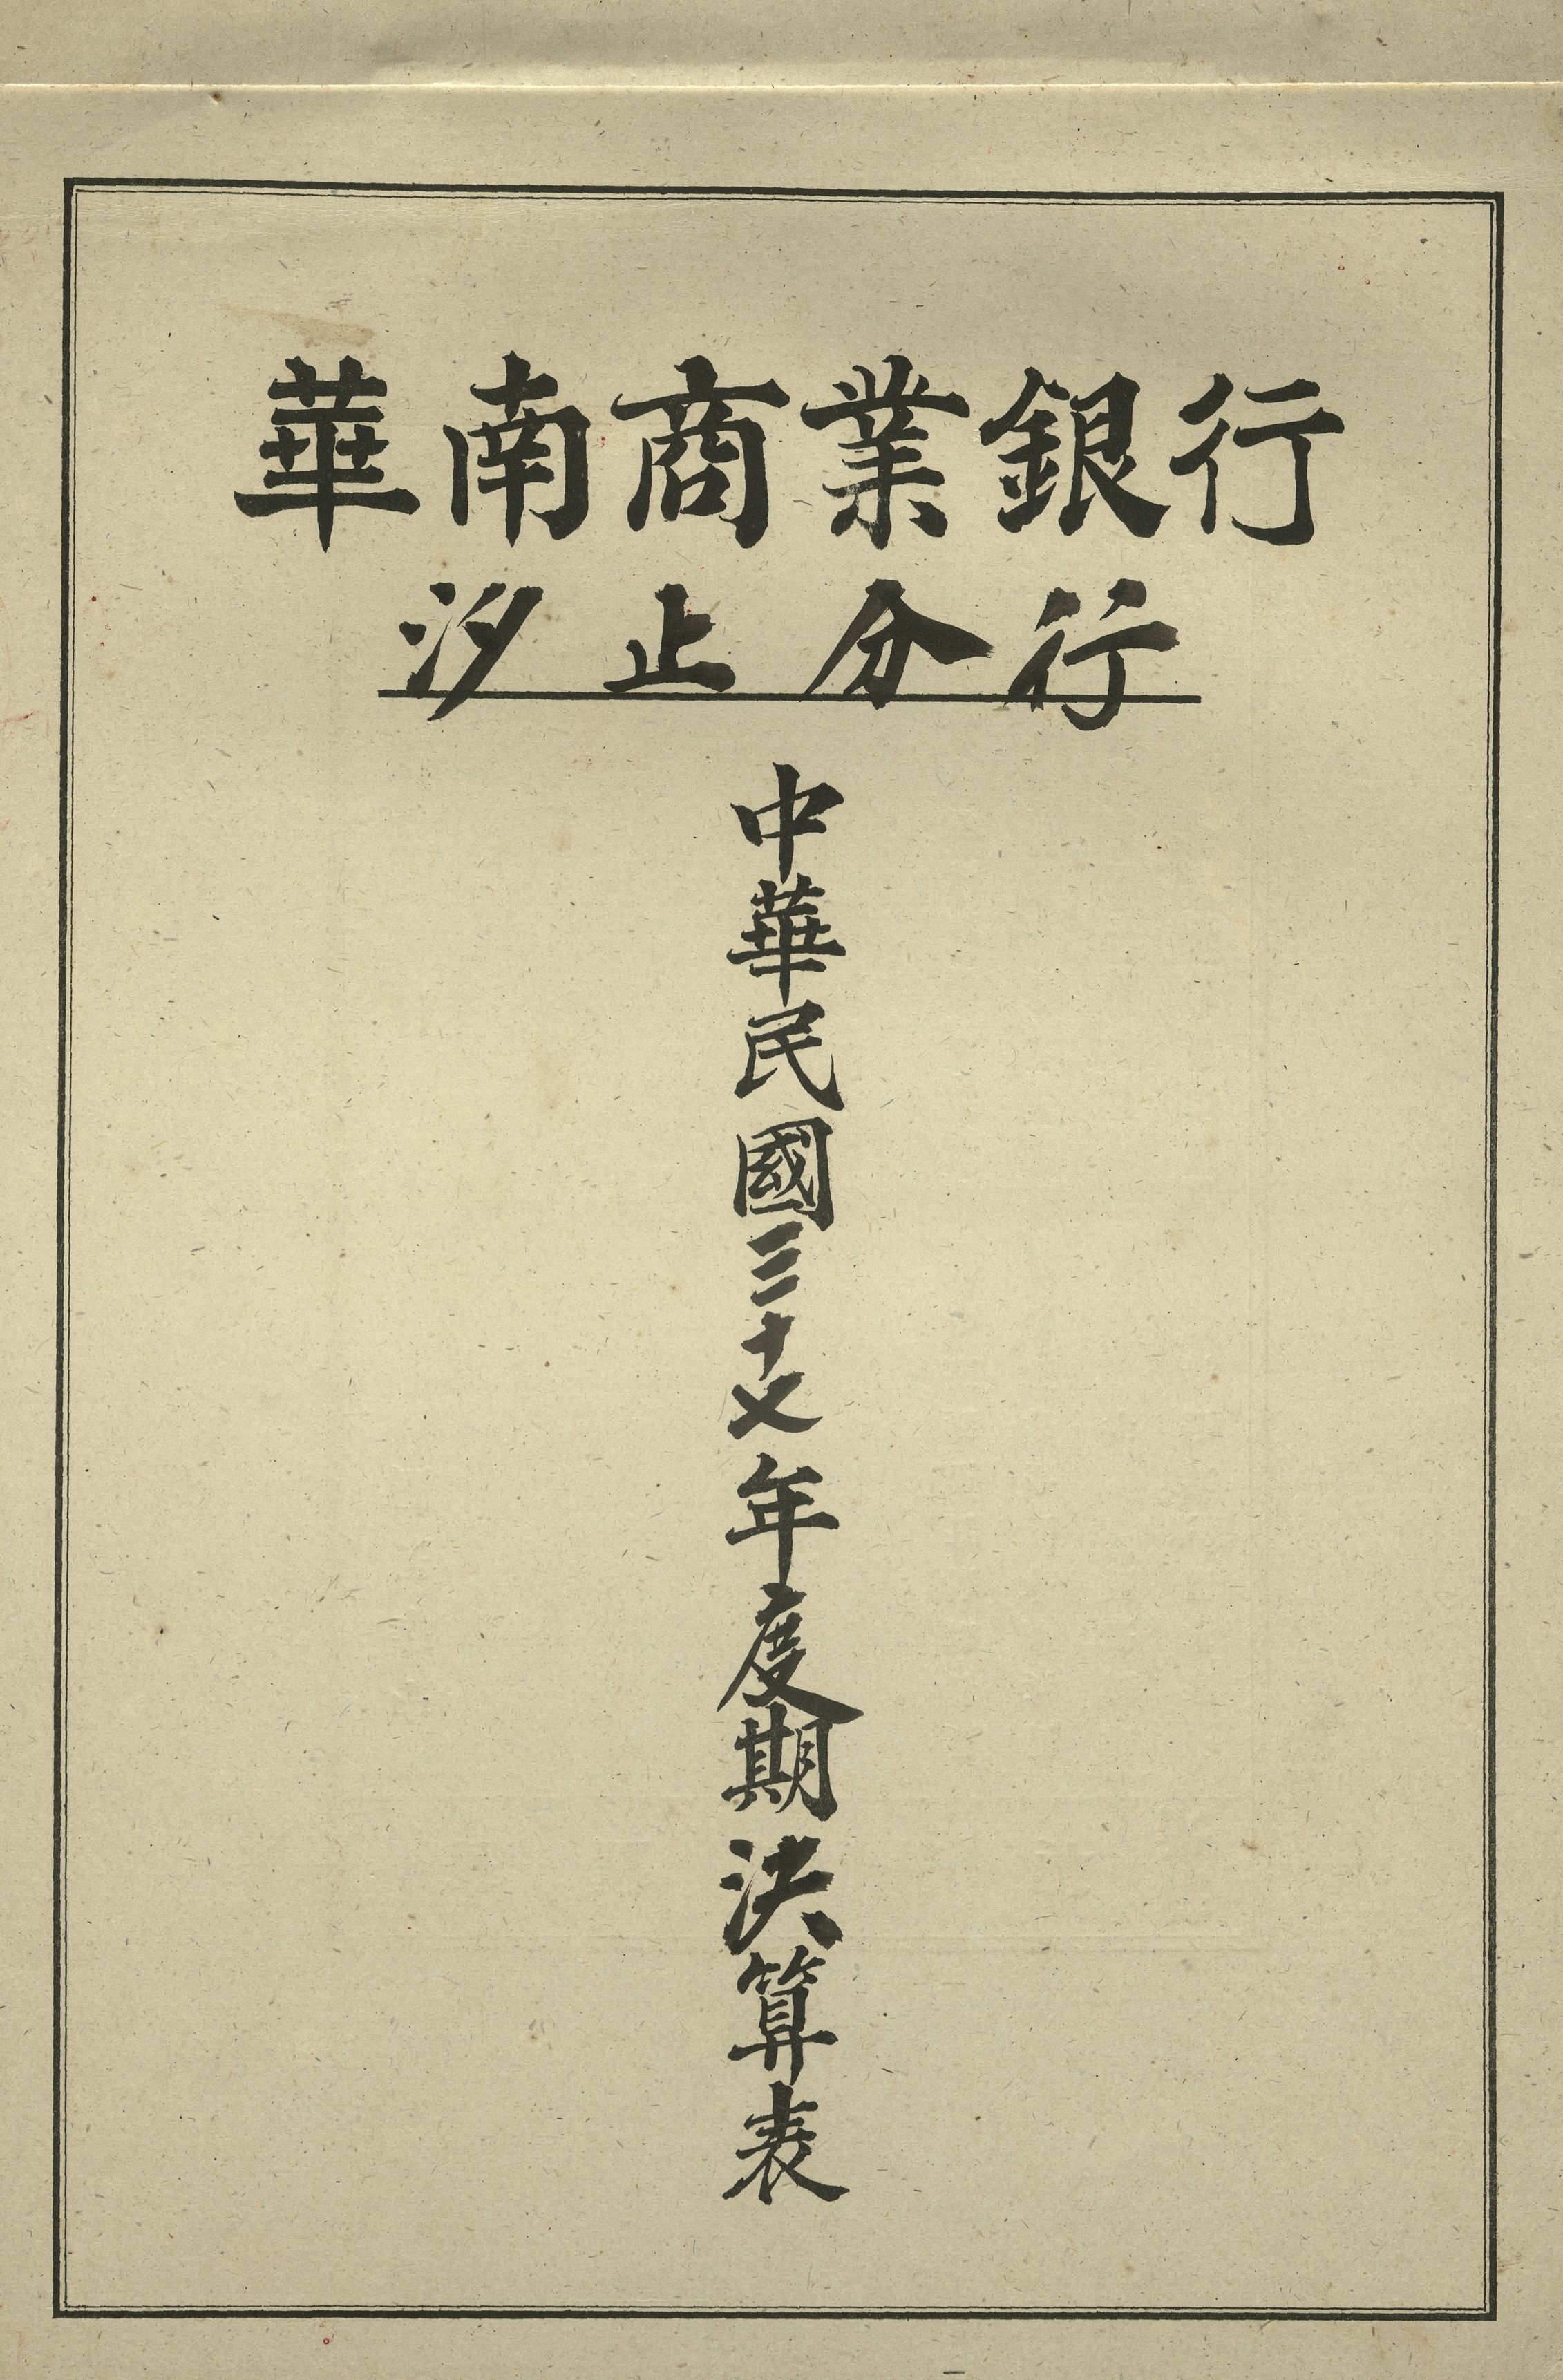 華南商業銀行
汐止分行
中華民國三十七年度期決算表